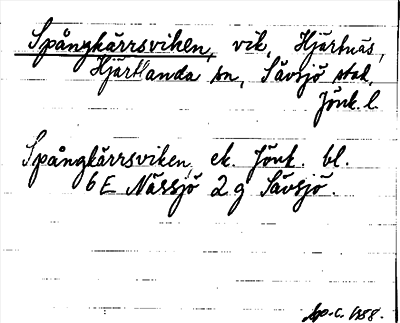 Spångkärrsviken, vik, Hjärtnäs,
Hjärtlanda sn, Sävsjö stad,
Jönk. l.
Spångkärrsviken, ek. Jönk. bl.
6E Nässjö 2 g Sävsjö.
1958.